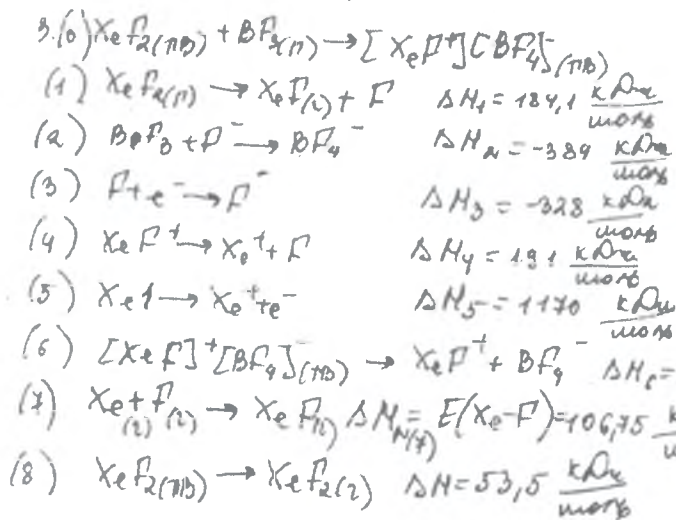 3. (0) XeF₂(тв) + BF₃(г) → [XeF⁺][BF₄]⁻(тв)
(1) XeF₂(г) → XeF(г) + F ΔH₁ = 184,1 кДж/моль
(2) BF₃ + F⁻ → BF₄⁻ ΔH₂ = -389 кДж/моль
(3) F + e⁻ → F⁻ ΔH₃ = -328 кДж/моль
(4) XeF⁺ → Xe⁺ + F ΔH₄ = 191 кДж/моль
(5) Xe → Xe⁺ + e⁻ ΔH₅ = 1170 кДж/моль
(6) [XeF]⁺[BF₄]⁻(тв) → XeF⁺ + BF₄⁻ ΔH₆ =
(7) Xe(г) + F(г) → XeF(г) ΔH(7) = E(Xe-F) = 106,75 к
(8) XeF₂(тв) → XeF₂(г) ΔH = 53,5 кДж/моль